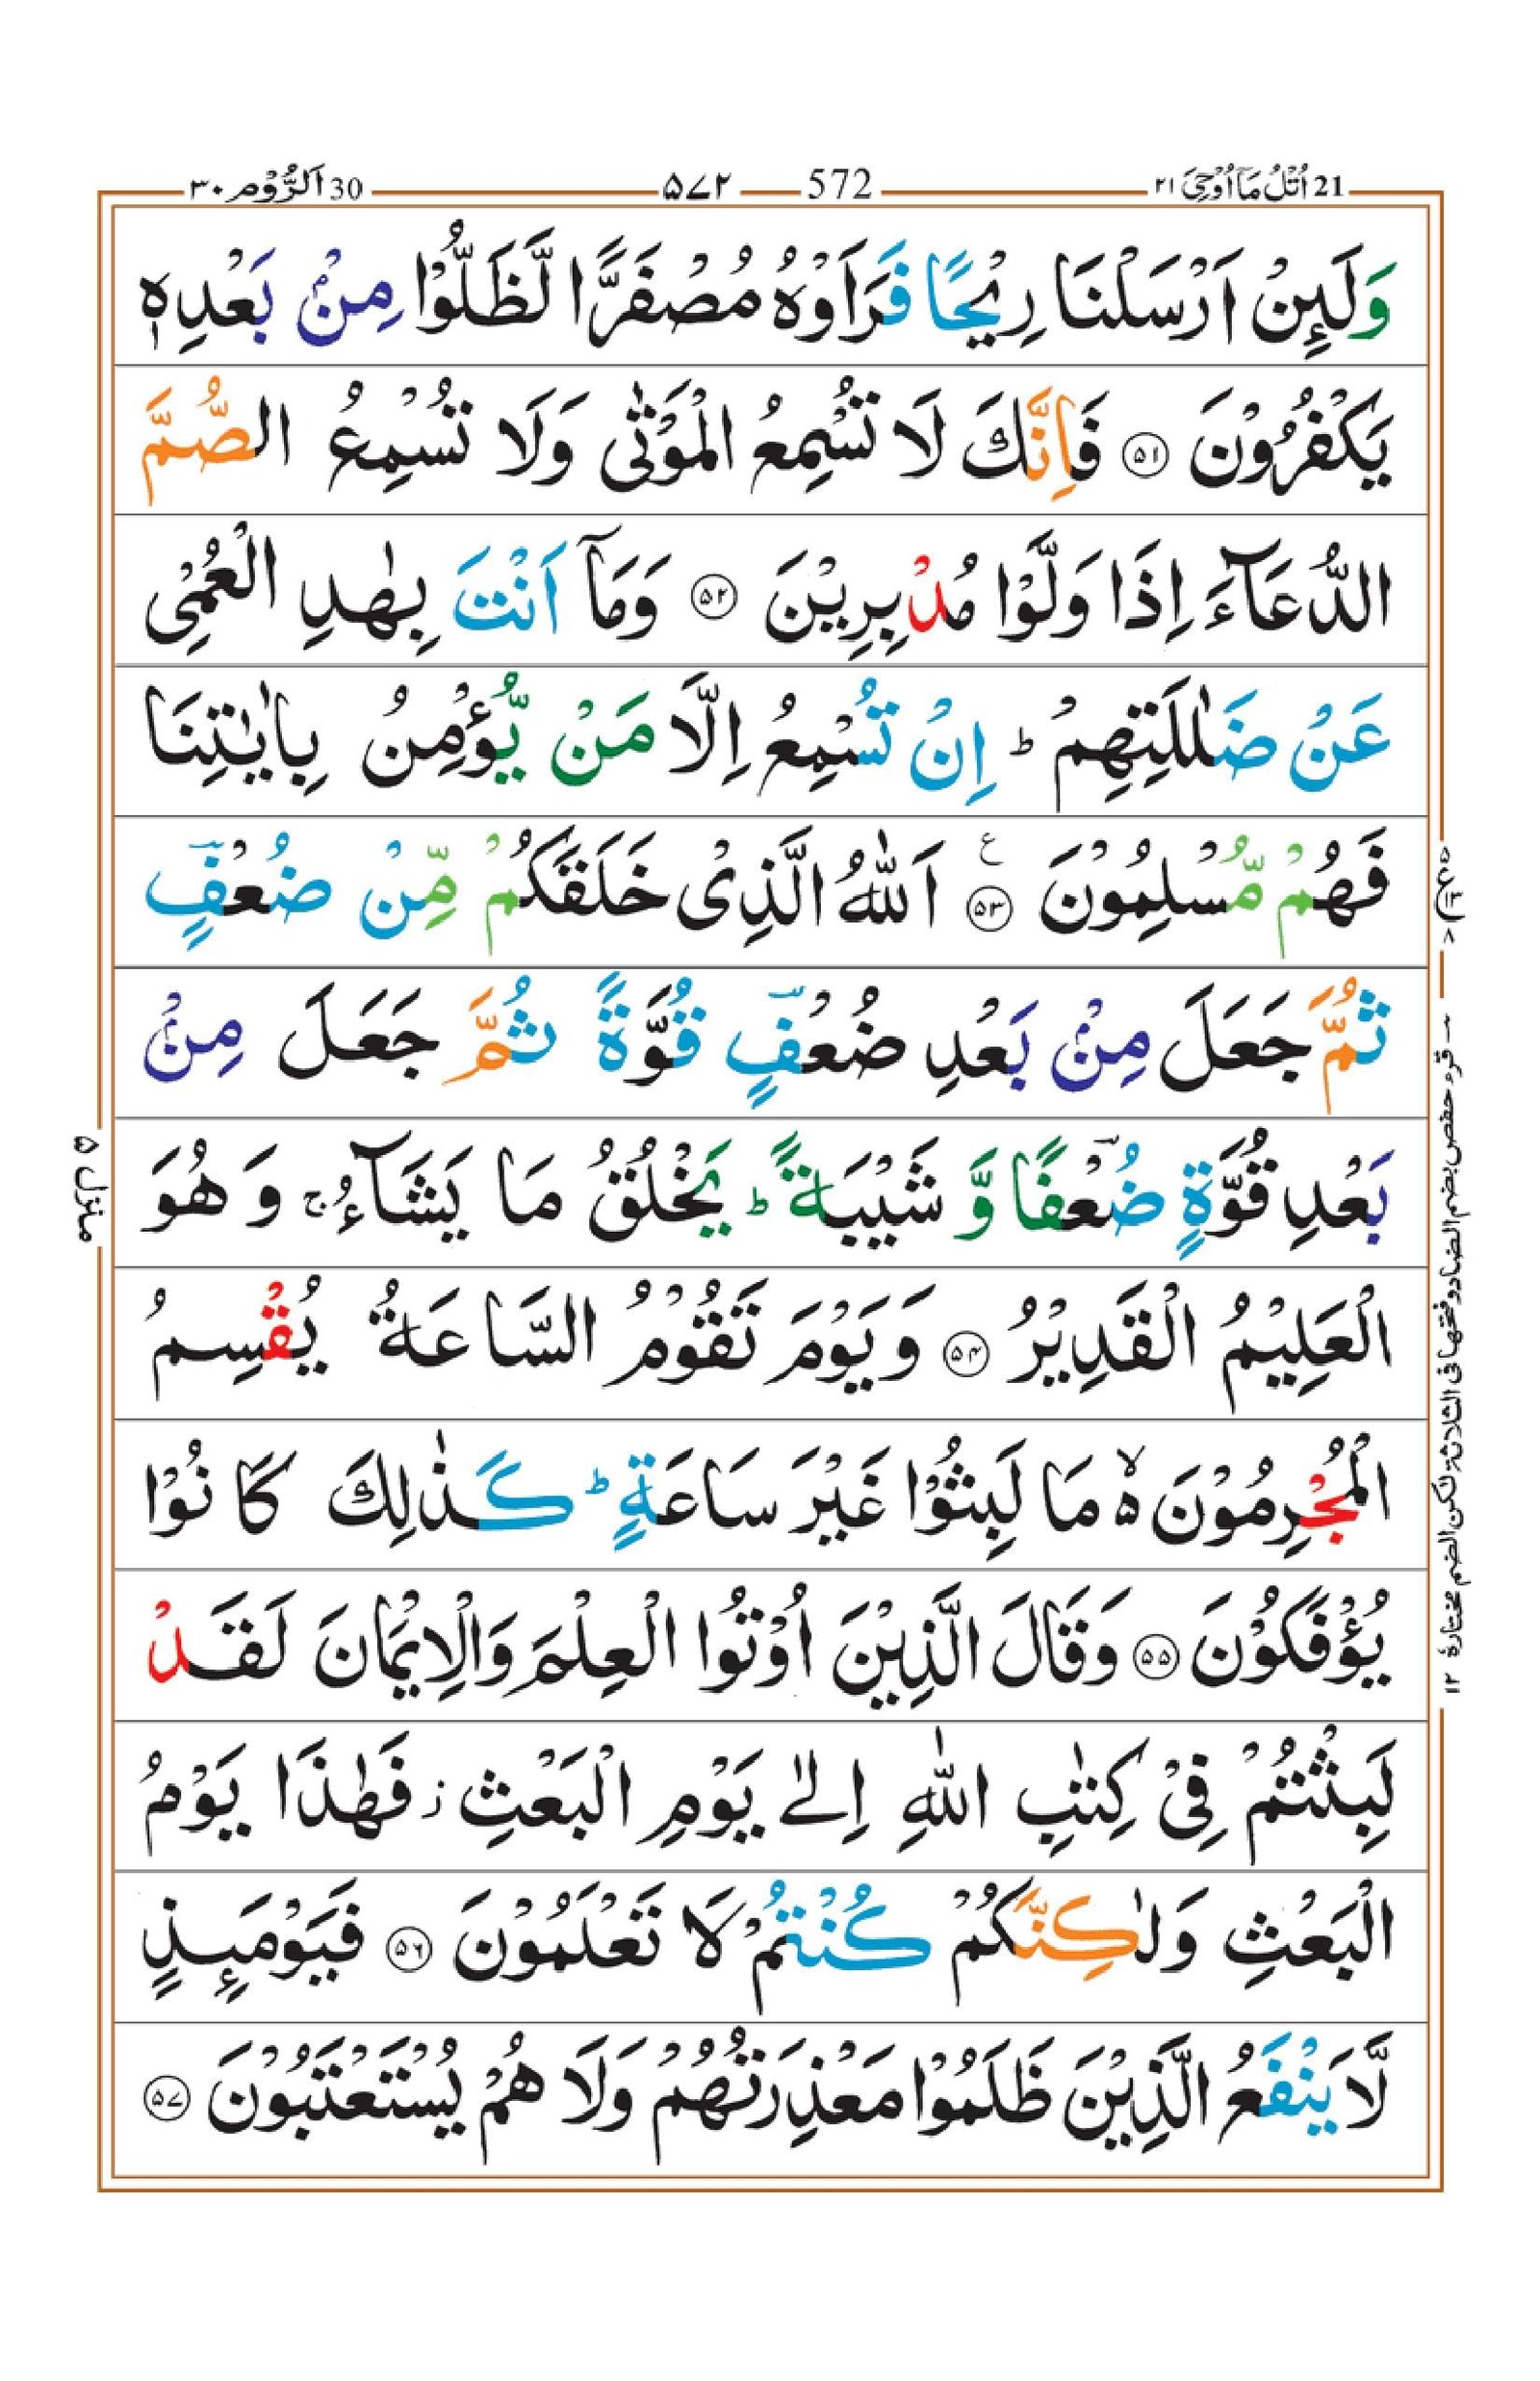 21 اُتْلُ مَاۤ اُوْحِیَ ۲۱
572 ۵۷۲
30 اَلرُّوْم ۳۰
وَلَىِٕنْ اَرْسَلْنَا رِیْحًا فَرَاَوْهُ مُصْفَرًّا لَّظَلُّوْا مِنْۢ بَعْدِهٖ
یَكْفُرُوْنَ ﴿۵۱﴾ فَاِنَّكَ لَا تُسْمِعُ الْمَوْتٰى وَلَا تُسْمِعُ الصُّمَّ
الدُّعَآءَ اِذَا وَلَّوْا مُدْبِرِیْنَ ﴿۵۲﴾ وَمَاۤ اَنْتَ بِهٰدِ الْعُمْیِ
عَنْ ضَلٰلَتِهِمْ ؕ اِنْ تُسْمِعُ اِلَّا مَنْ یُّؤْمِنُ بِاٰیٰتِنَا
فَهُمْ مُّسْلِمُوْنَ ﴿۵۳﴾ ع اَللّٰهُ الَّذِیْ خَلَقَكُمْ مِّنْ ضُعْفٍ
ثُمَّ جَعَلَ مِنْۢ بَعْدِ ضُعْفٍ قُوَّةً ثُمَّ جَعَلَ مِنْۢ
بَعْدِ قُوَّةٍ ضُعْفًا وَّ شَیْبَةً ؕ یَخْلُقُ مَا یَشَآءُ ۚ وَ هُوَ
الْعَلِیْمُ الْقَدِیْرُ ﴿۵۴﴾ وَ یَوْمَ تَقُوْمُ السَّاعَةُ یُقْسِمُ
الْمُجْرِمُوْنَ ۙ۬ مَا لَبِثُوْا غَیْرَ سَاعَةٍ ؕ كَذٰلِكَ كَانُوْا
یُؤْفَكُوْنَ ﴿۵۵﴾ وَقَالَ الَّذِیْنَ اُوْتُوا الْعِلْمَ وَالْاِیْمَانَ لَقَدْ
لَبِثْتُمْ فِیْ كِتٰبِ اللّٰهِ اِلٰى یَوْمِ الْبَعْثِ ؗ فَهٰذَا یَوْمُ
الْبَعْثِ وَلٰكِنَّكُمْ كُنْتُمْ لَا تَعْلَمُوْنَ ﴿۵۶﴾ فَیَوْمَىِٕذٍ
لَّا یَنْفَعُ الَّذِیْنَ ظَلَمُوْا مَعْذِرَتُهُمْ وَلَا هُمْ یُسْتَعْتَبُوْنَ ﴿۵۷﴾
منزل ۵
قرء حفص بضم الضاد وفتحها فی الثلاثة لكن الضم مختارة ۱۲